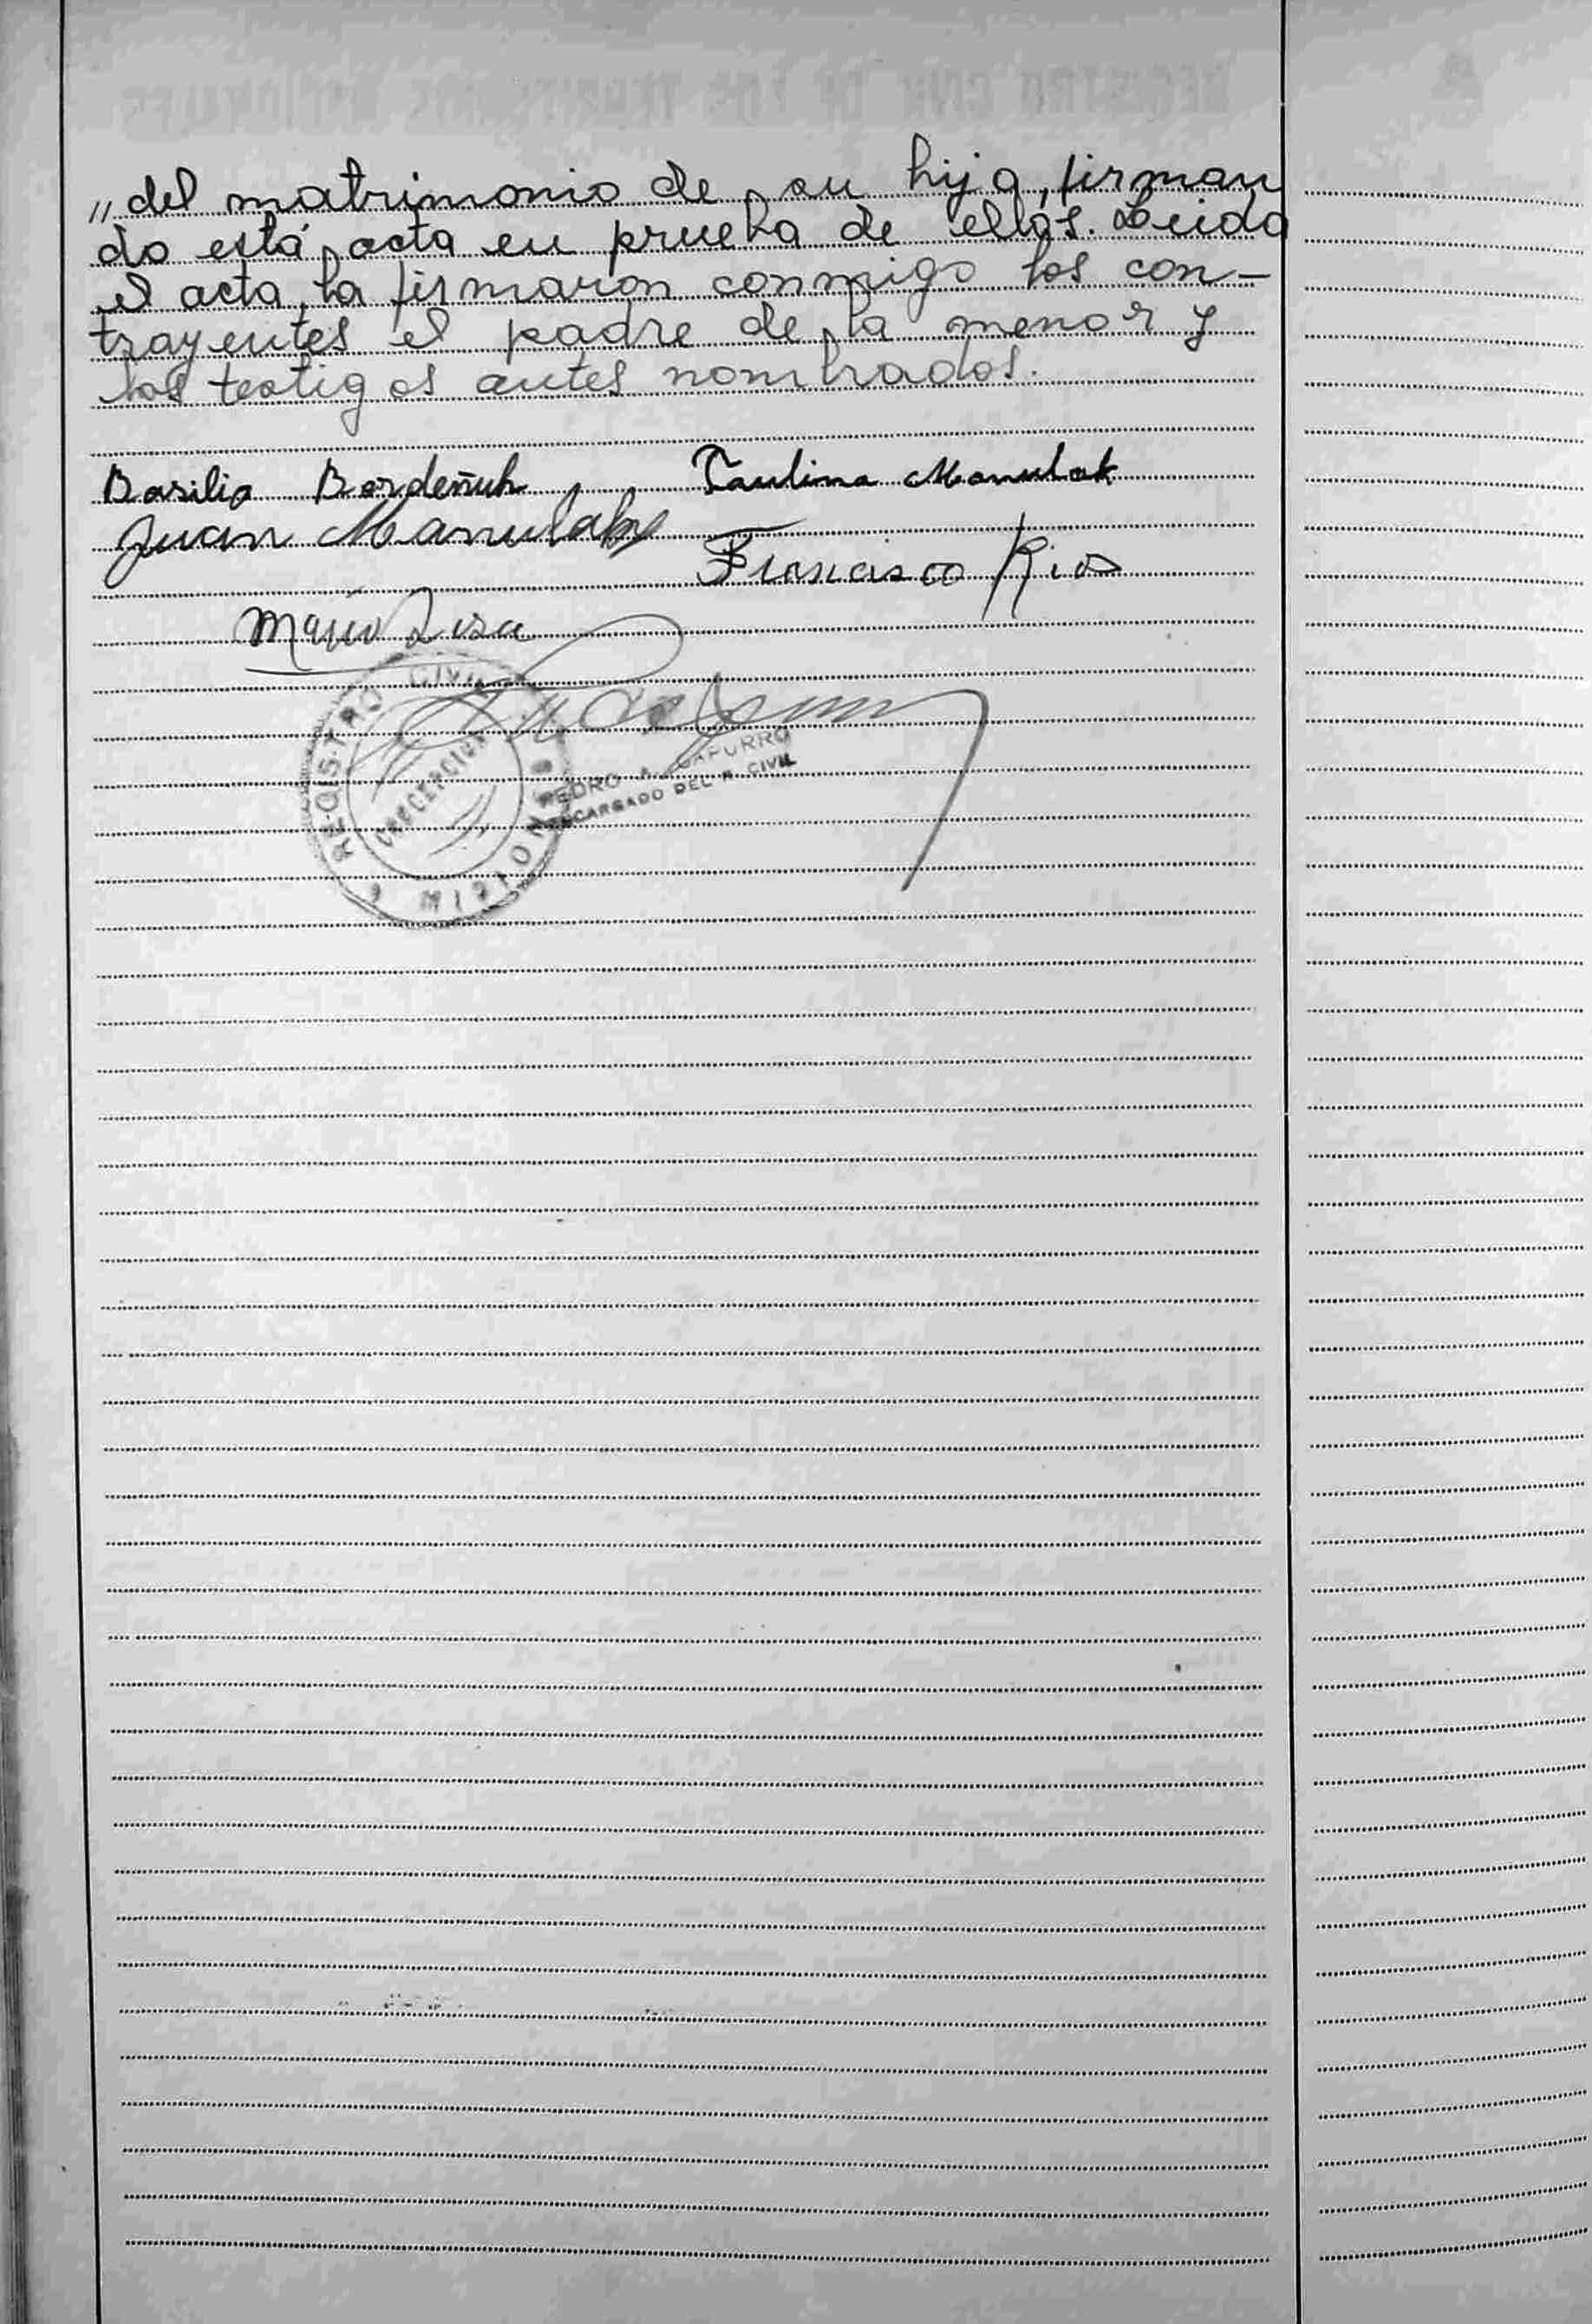 〃 del matrimonio de su hija, firman
do está acta en prueba de ellos. Leida
el acta, la firmaron conmigo los con-
trayentes el padre de la menor y
los testigos antes nombrados.
Basilio Bordeñuk Paulina Manulak
Juan Manulak
Francisco Rios
Mario
REGISTRO CIVIL
CONCEPCION
MISIONES
PEDRO A. CAPURRO
ENCARGADO DEL R. CIVIL